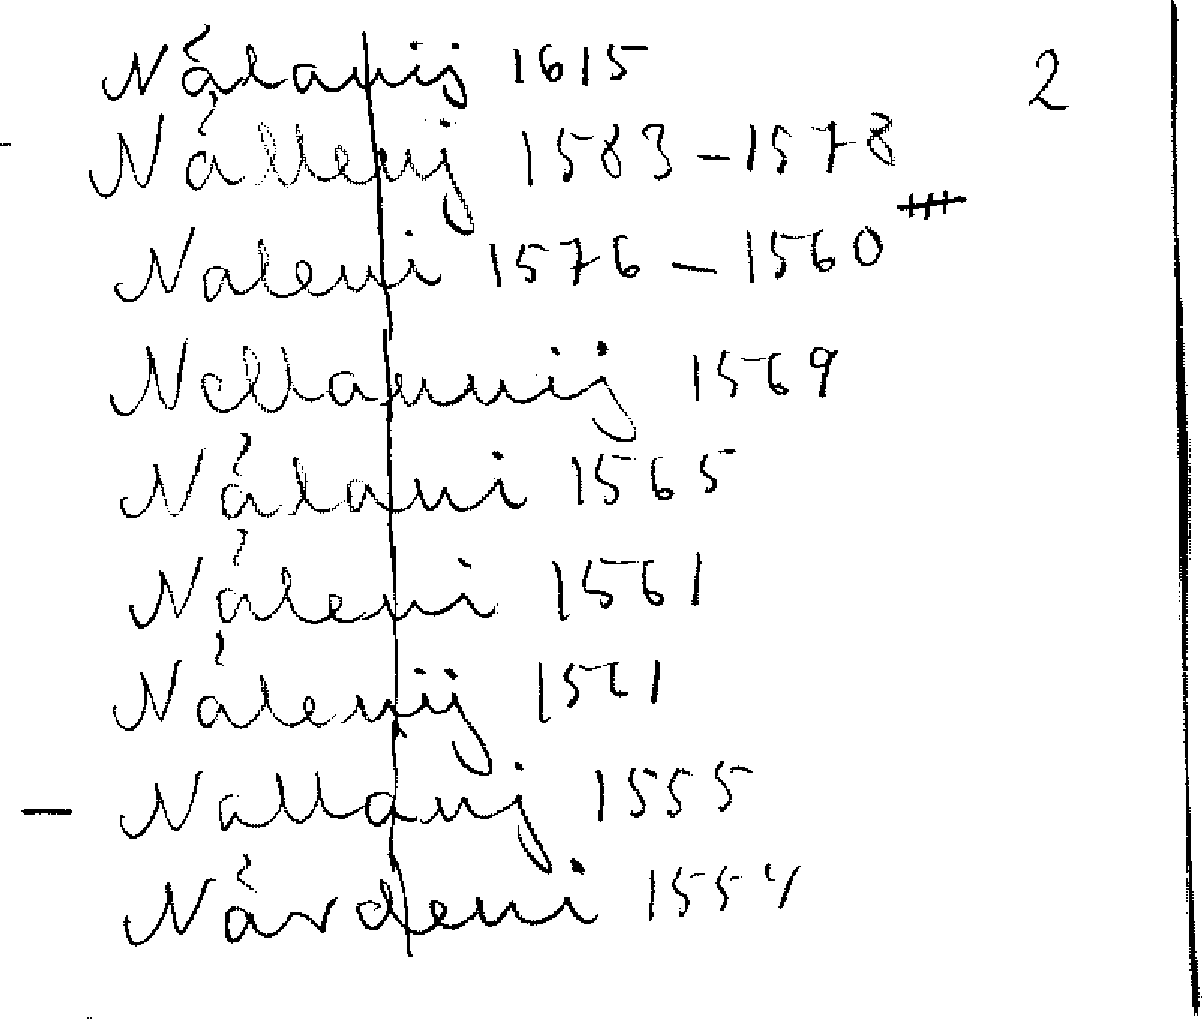 Nålanij 1615
2
Nållenj 1583-1578
Naleni 1576-1560
Nallannij 1569
Nålani 1565
Nåleni 1561
Nålenij 1561
Nallanj 1555
Nårdeni 1554